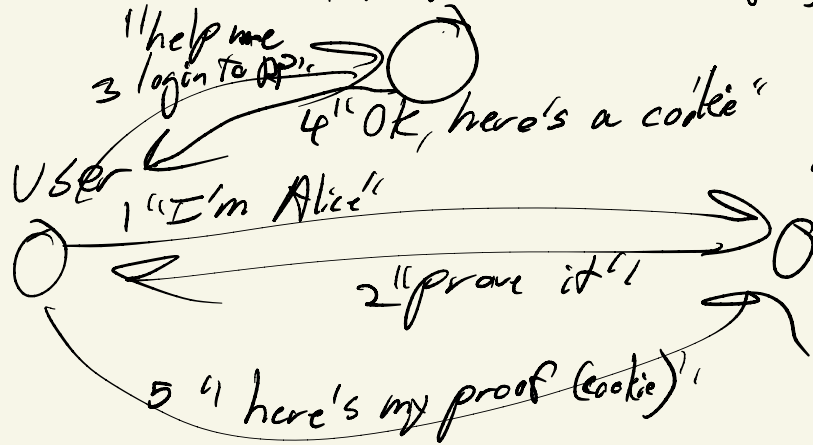 "help me
3 login to AP"
4 "Ok, here's a cookie"
User
1 "I'm Alice"
2 "prove it"
5 "here's my proof (cookie)"